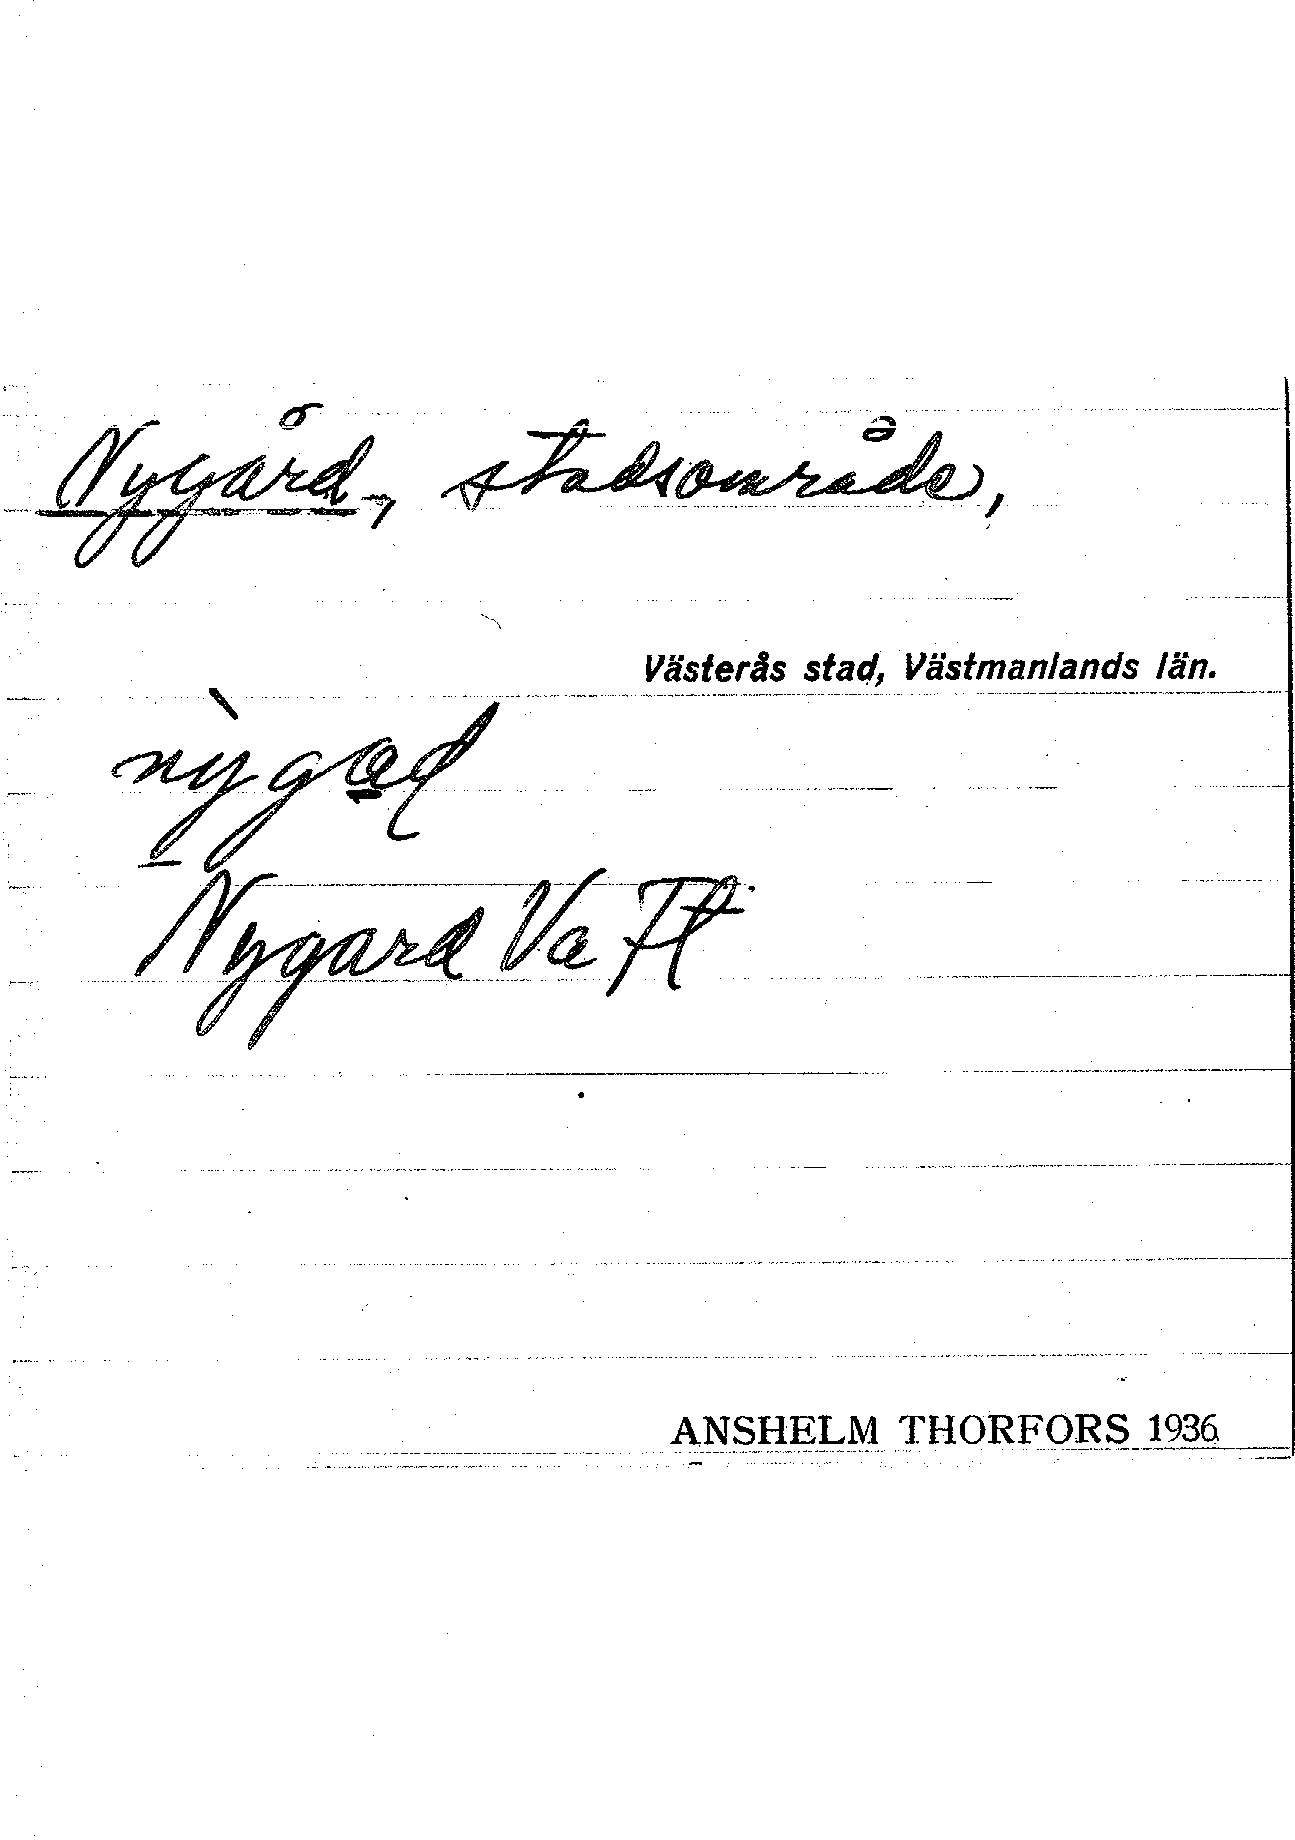 Nygård, stadsområde,
Västerås stad, Västmanlands län.
nỳgad
Nygard Va Ft
ANSHELM THORFORS 1936